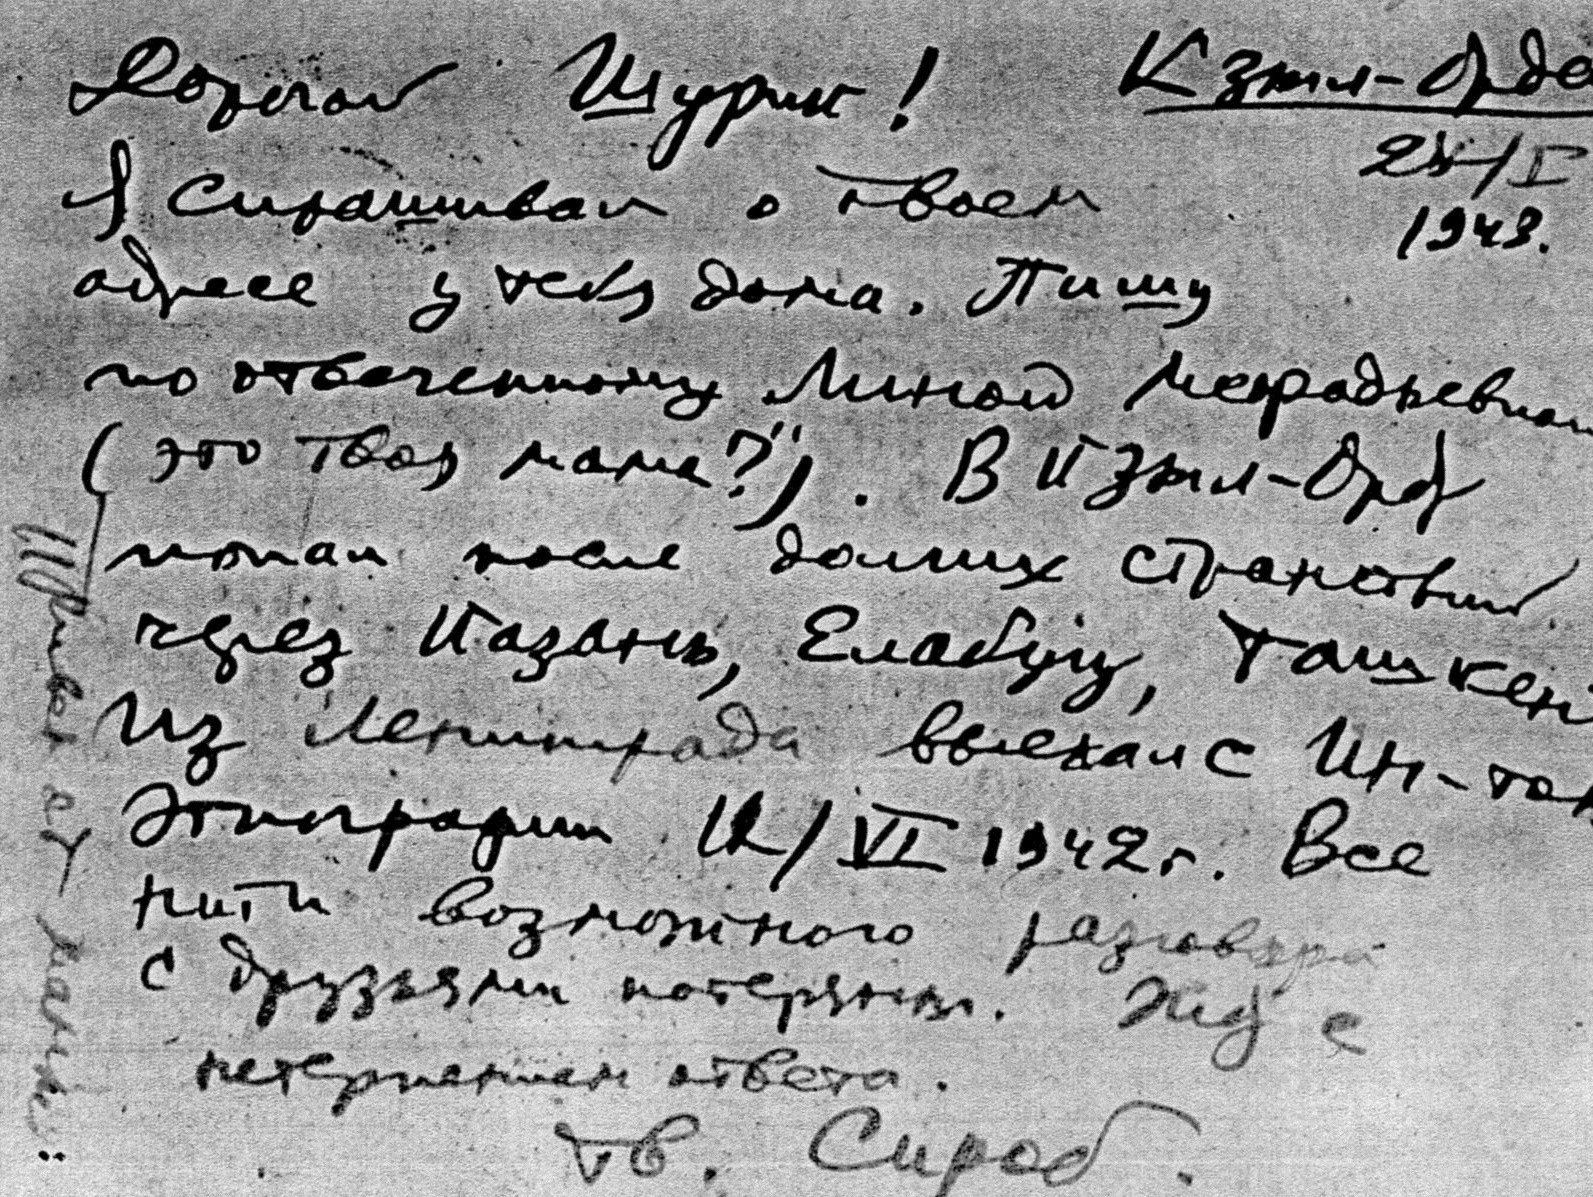 Дорогой Шурик!
Кзыл-Орда
28/I
1943.
Я спрашивал о твоем
адресе у тебя дома. Пишу
по отвеченному Линой Меорадьевной
(это твоя мама?"). В Кзыл-Орду
попал после долгих странствий
через Казань, Елабугу, Ташкент
Из Ленинграда выехал с Ин-том
Этнографии 12/VI 1942 г. Все
нити возможного разговора
с друзьями потеряны. Жду с
нетерпением ответа.
Тв. Сироб.
Привет от